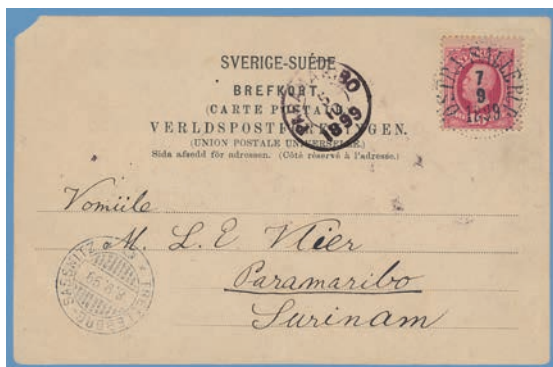 SVERIGE-SUÈDE
BREFKORT
(CARTE POSTALE)
VERLDSPOSTFÖRENINGEN.
(UNION POSTALE UNIVERSELLE.)
Sida afsedd för adressen. (Côté réservé à l'adresse.)
PARAMARIBO
1899
ÖSTRA SALLERUP
7
9
1899
M. L. E Vlier
Paramaribo
Surinam
TRELLEBORG-SASSNITZ
8.9.99